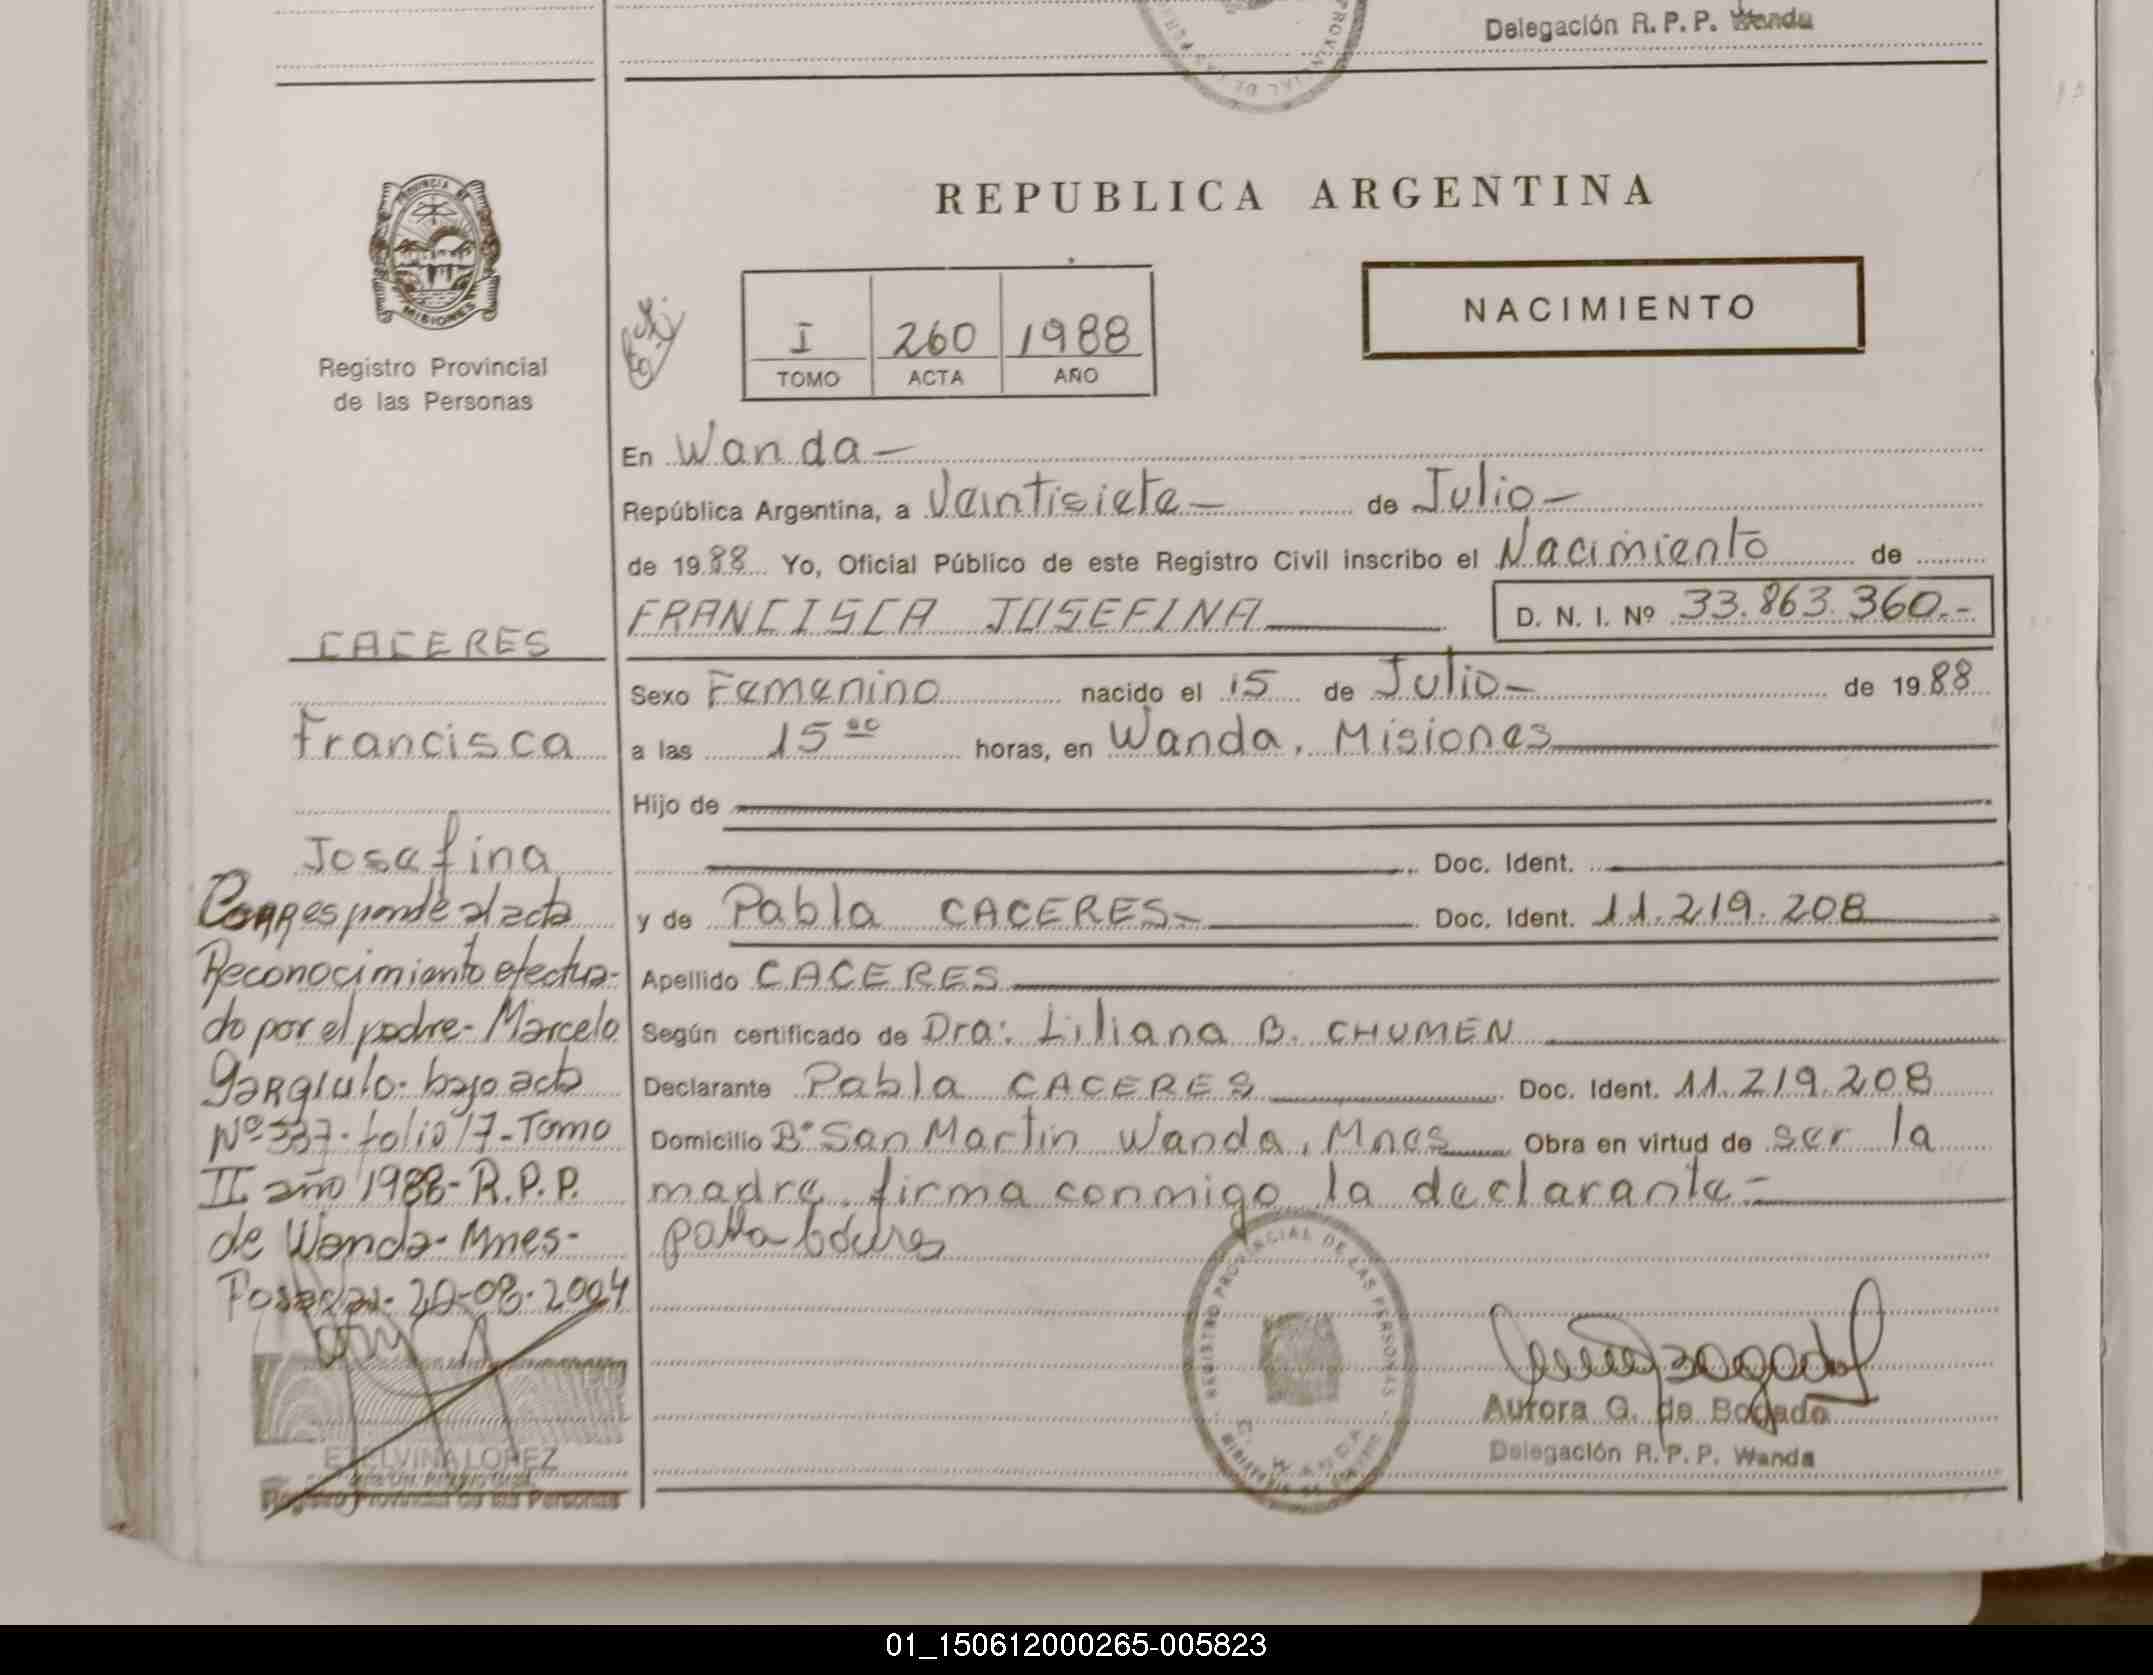 Delegación R. P. P. Wanda
PROVINCIAL DE LAS PER
PROVINCIA DE
MISIONES
Registro Provincial
de las Personas
REPUBLICA ARGENTINA
NACIMIENTO
I 260 1988
TOMO ACTA AÑO
En Wanda —
República Argentina, a Veintisiete — de Julio —
de 1988 Yo, Oficial Público de este Registro Civil inscribo el Nacimiento de
FRANCISCA JOSEFINA D. N. I. Nº 33.863.360.-
CACERES
Sexo Femenino nacido el 15 de Julio — de 1988
Francisca
a las 15 00 horas, en Wanda, Misiones
Hijo de
Josefina
Doc. Ident.
y de Pabla CACERES- Doc. Ident. 11.219.208
Apellido CACERES
Según certificado de Dra: Liliana B. CHUMEN
Declarante Pabla CACERES Doc. Ident. 11.219.208
Domicilio Bº San Martin Wanda, Mnes Obra en virtud de ser la
madre. firma conmigo la declarante -
Corresponde al acta
Reconocimiento efectua-
do por el padre- Marcelo
Gargiulo- bajo acta
Nº 337- folio 17- Tomo
II año 1988- R.P.P.
de Wanda- Mnes-
Posadas- 20-08-2004
REGISTRO PROVINCIAL DE LAS PERSONAS
WANDA
Aurora G. de Bogado
Delegación R. P. P. Wanda
ETELVINA LOPEZ
Registro Provincial de las Personas
01_150612000265-005823